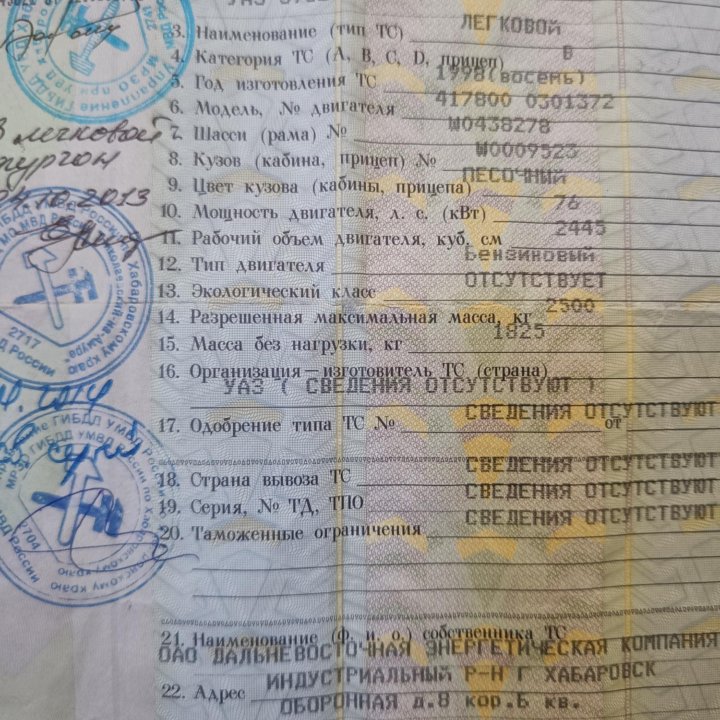 3. Наименование (тип ТС) ЛЕГКОВОЙ
4. Категория ТС (А, В, С, D, прицеп) В
5. Год изготовления ТС 1998(восень)
6. Модель, № двигателя 417800 0301372
7. Шасси (рама) № W0438278
8. Кузов (кабина, прицеп) № W0009523
9. Цвет кузова (кабины, прицепа) ПЕСОЧНЫЙ
10. Мощность двигателя, л. с. (кВт) 76
11. Рабочий объем двигателя, куб. см 2445
12. Тип двигателя Бензиновый
13. Экологический класс ОТСУТСТВУЕТ
14. Разрешенная максимальная масса, кг 2500
15. Масса без нагрузки, кг 1825
16. Организация—изготовитель ТС (страна)
УАЗ ( СВЕДЕНИЯ ОТСУТСТВУЮТ )
17. Одобрение типа ТС № СВЕДЕНИЯ ОТСУТСТВУЮТ от
18. Страна вывоза ТС СВЕДЕНИЯ ОТСУТСТВУЮТ
19. Серия, № ТД, ТПО СВЕДЕНИЯ ОТСУТСТВУЮТ
20. Таможенные ограничения СВЕДЕНИЯ ОТСУТСТВУЮТ
21. Наименование (ф. и. о.) собственника ТС
ОАО ДАЛЬНЕВОСТОЧНАЯ ЭНЕРГЕТИЧЕСКАЯ КОМПАНИЯ
22. Адрес ИНДУСТРИАЛЬНЫЙ Р-Н Г ХАБАРОВСК
ОБОРОННАЯ д.8 кор.Б кв.
легковой
фургон
2013
2717
2014
2704